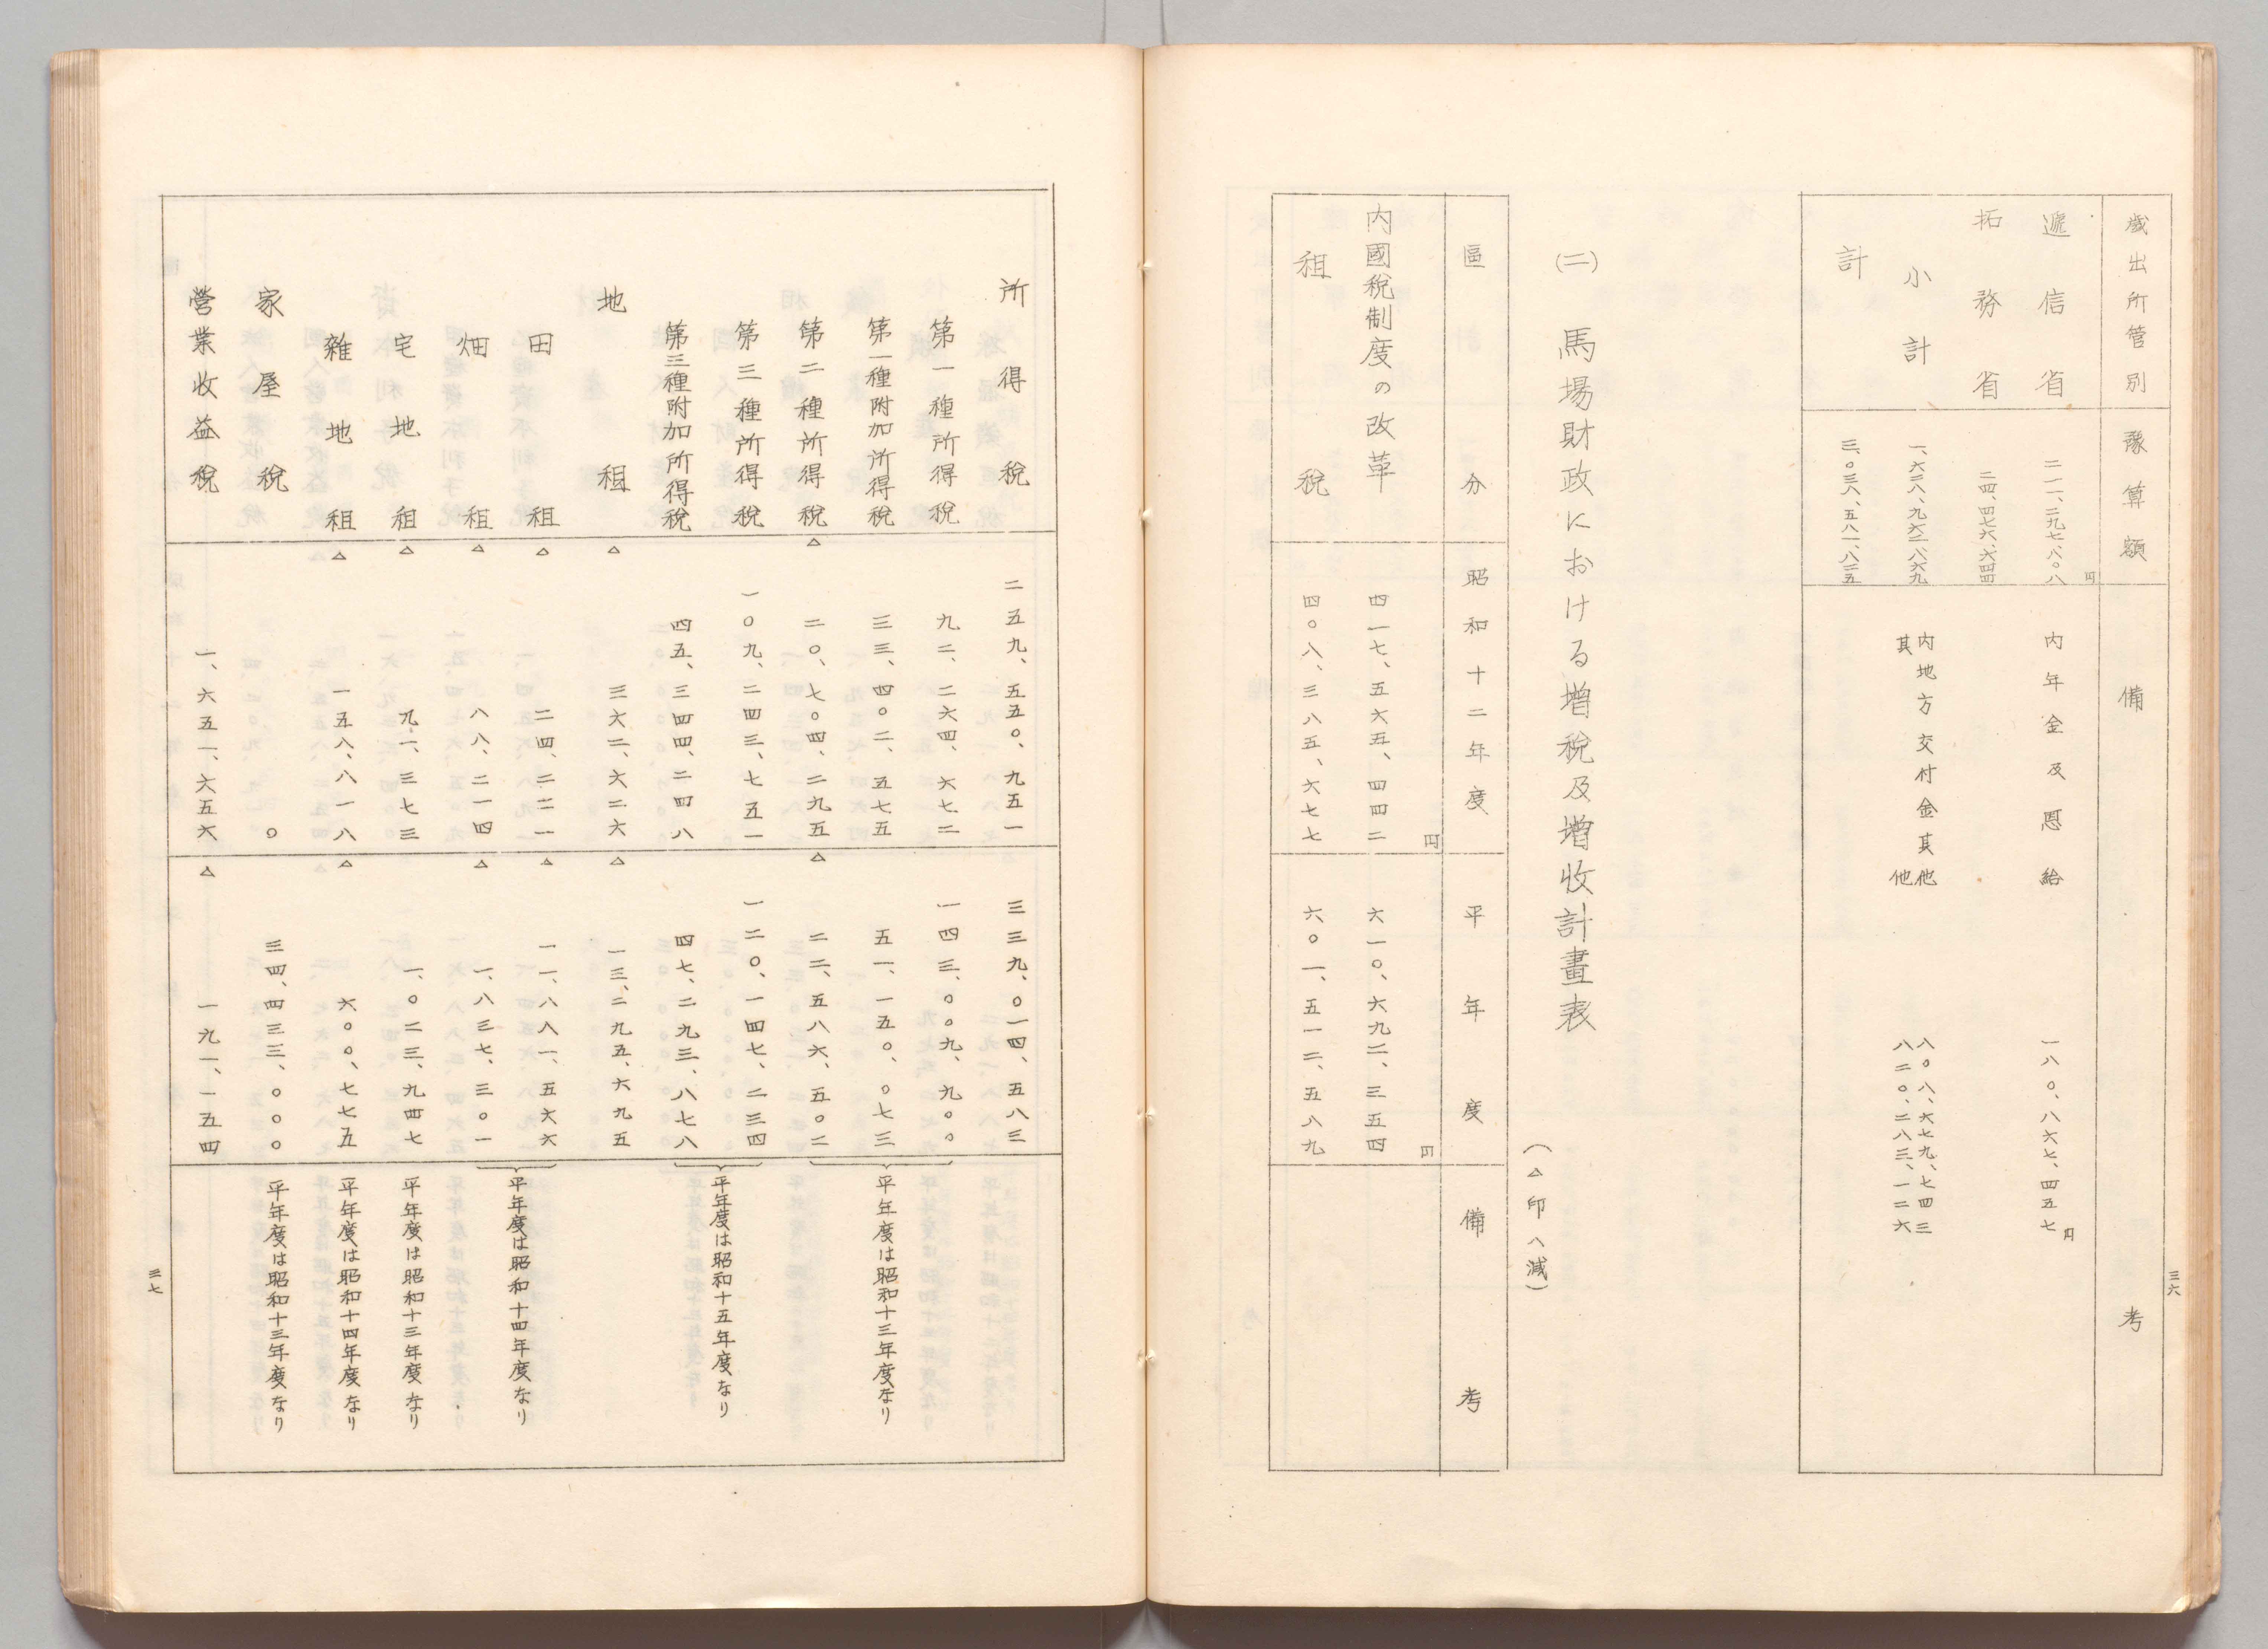 三六
歲出所管別 豫算額 備考
遞信省 二一一、二九七、八〇八円 内年金及恩給 一八〇、八六七、四五七円
拓務省 二四、四七六、六四四
小計 一、六二八、九六二、八六九 内地方交付金其他 八〇八、六七九、七四三
其他 八二〇、二八三、一二六
計 三、〇三八、五八一、八三五
(二) 馬場財政における增稅及增收計畫表
(△印ハ減)
區分 昭和十二年度 平年度 備考
円 円
内國稅制度の改革 四一七、五六五、四四二 六一〇、六九二、三五四
租稅 四〇八、三八五、六七七 六〇一、五一二、五八九
所得稅 二五九、五五〇、九五一 三三九、〇一四、五八三
第一種所得稅 九二、二六四、六七二 一四三、〇〇九、九〇〇
第一種附加所得稅 三三、四〇二、五七五 五一、一五〇、〇七三 平年度は昭和十三年度なり
第二種所得稅 △二〇、七〇四、二九五 △二二、五八六、五〇二
第三種所得稅 一〇九、二四三、七五一 一二〇、一四七、二三四
平年度は昭和十五年度なり
第三種附加所得稅 四五、三四四、二四八 四七、二九三、八七八
地租 △三六二、六二六 △一三、二九五、六九五
田租 △二四、二二一 △一一、八八一、五六六
平年度は昭和十四年度なり
畑租 △八八、二一四 △一、八三七、三〇一
宅地租 △九一、三七三 一、〇二三、九四七 平年度は昭和十三年度なり
雜地租 △一五八、八一八 △六〇〇、七七五 平年度は昭和十四年度なり
家屋稅 〇 三四、四三三、〇〇〇 平年度は昭和十三年度なり
營業收益稅 一、六五一、六五六 △一九一、一五四
三七